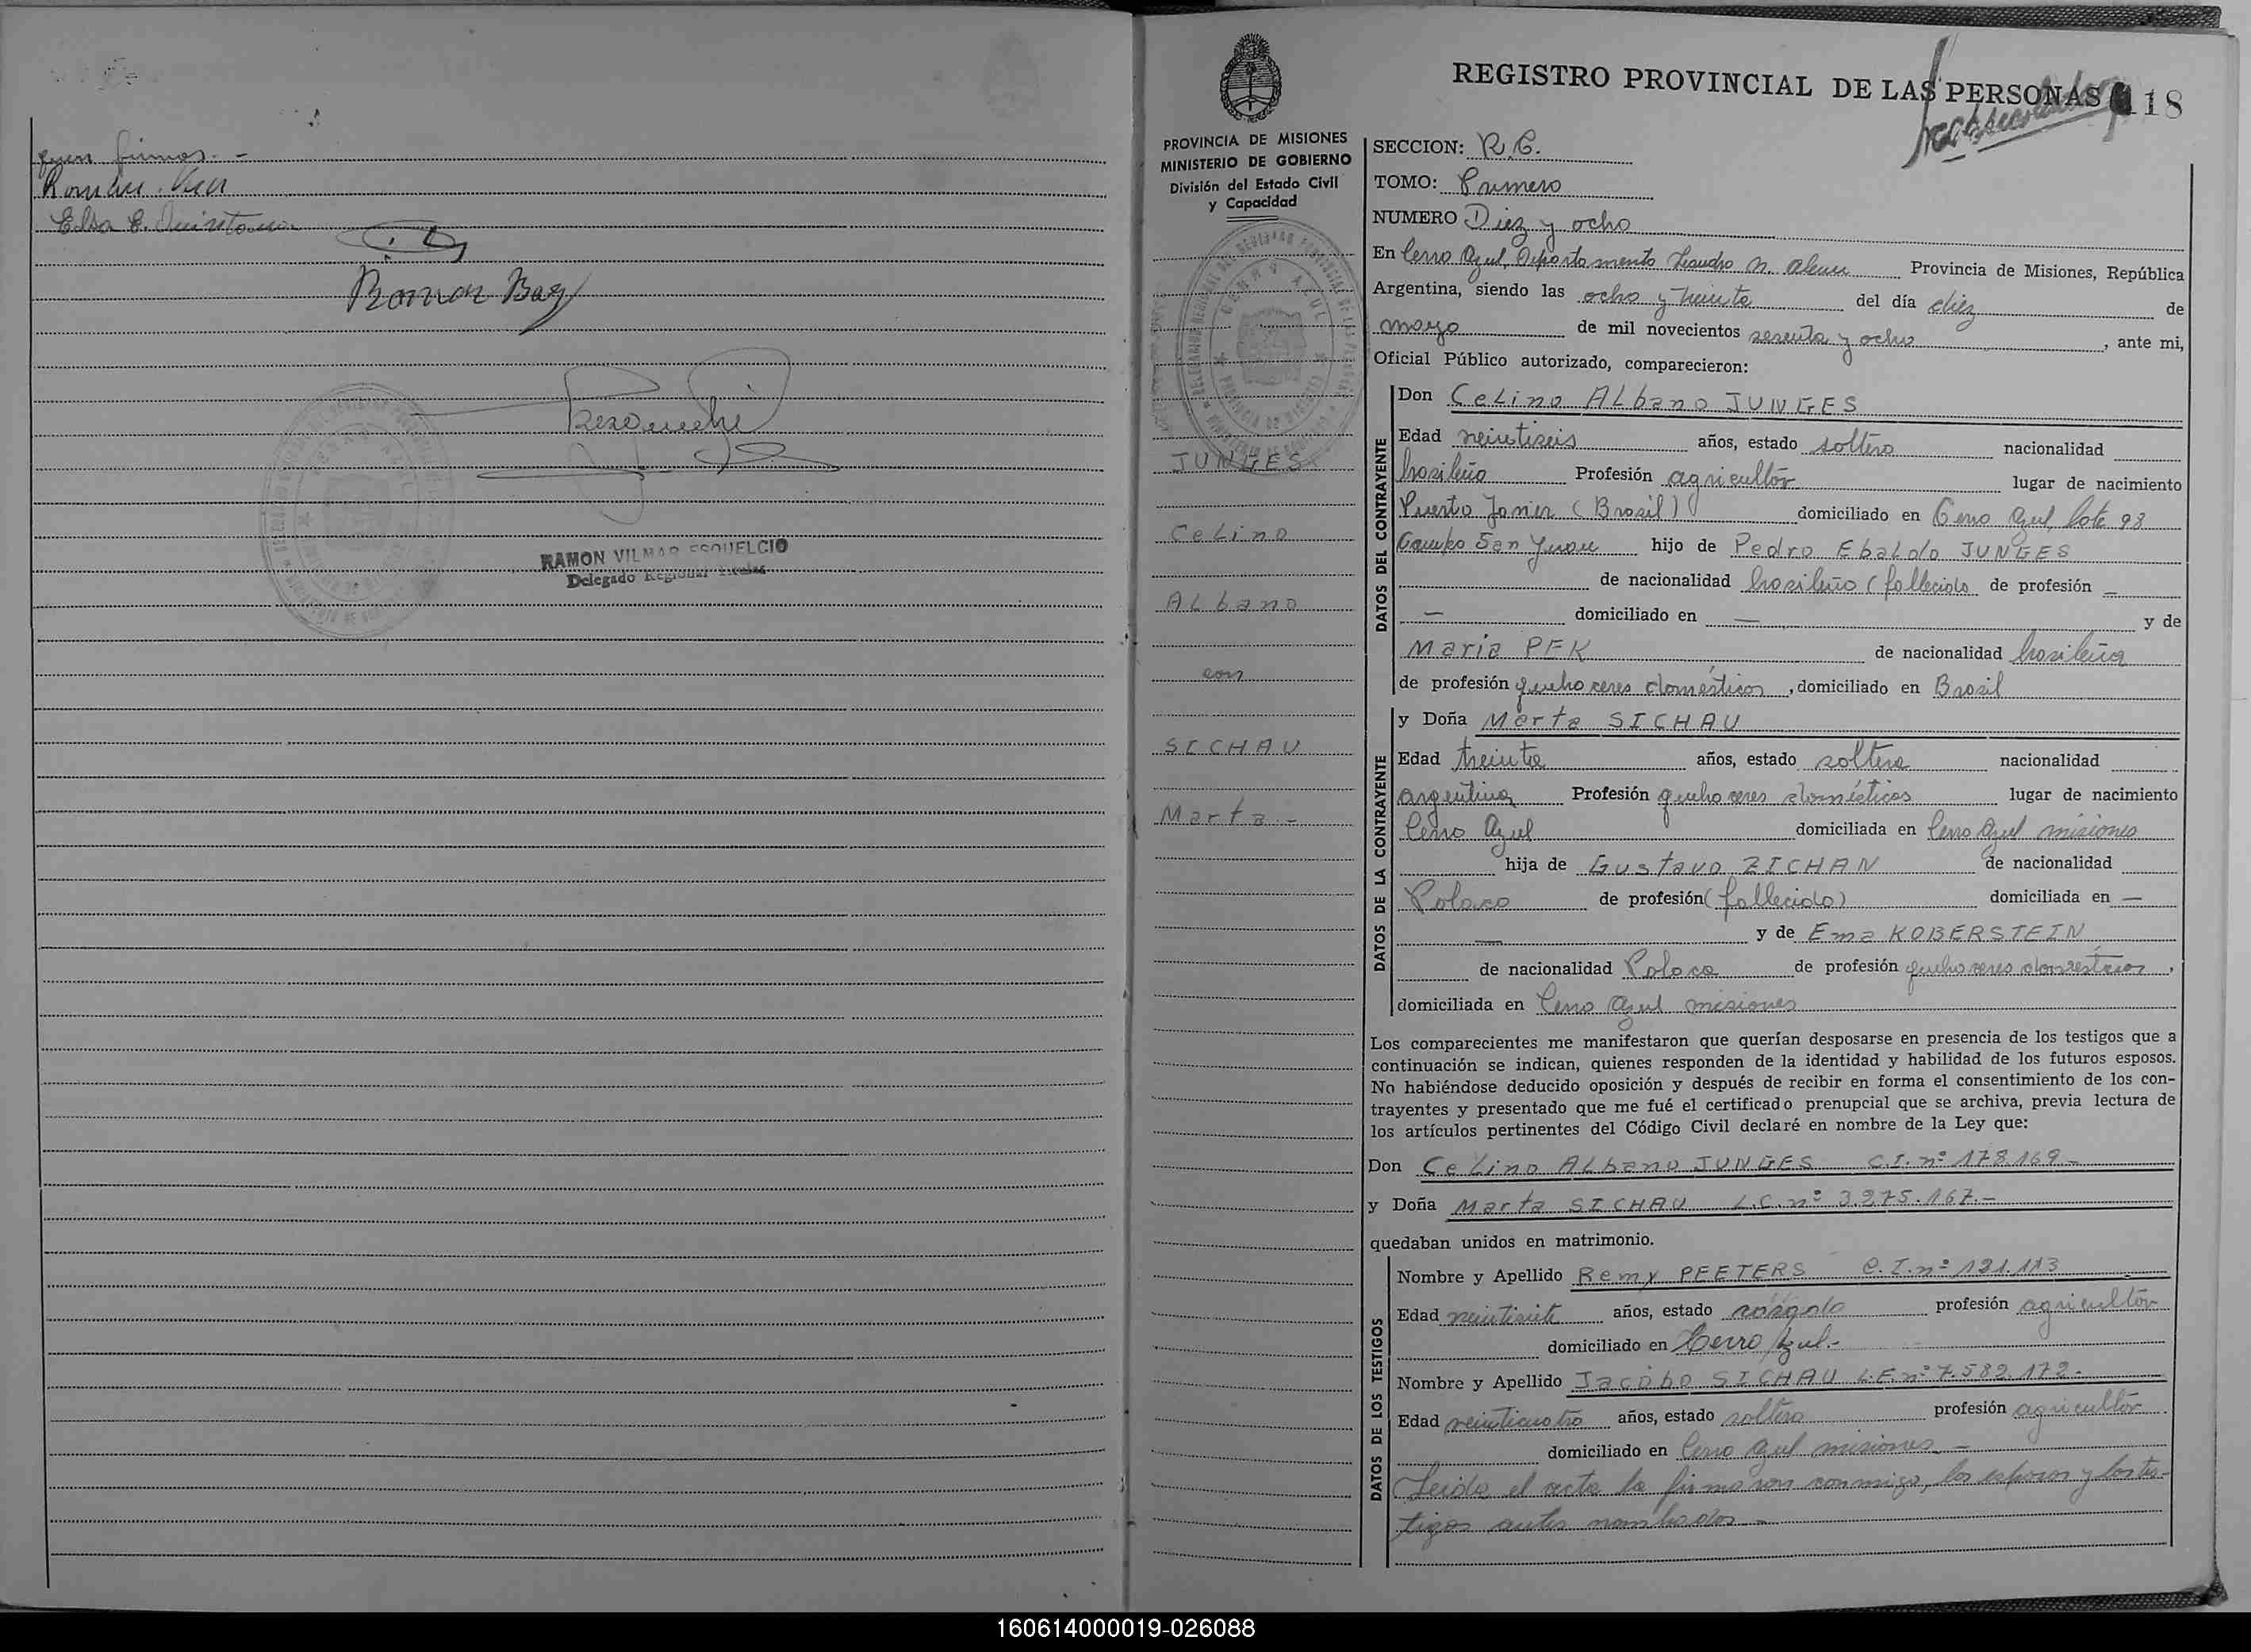 firmas. -
Elsa E. Quintana
Ramon Baez
RAMON VILMAR ESQUELCIO
Delegado Regional Titular
REGISTRO PROVINCIAL DE LAS PERSONAS 118
PROVINCIA DE MISIONES
MINISTERIO DE GOBIERNO
División del Estado Civil
y Capacidad
JUNGES
Celino
Albano
con
SICHAU
Marta.-
SECCION: R.C.
TOMO: Primero
NUMERO Diez y ocho
En Cerro Azul, Departamento Leandro N. Alem Provincia de Misiones, República
Argentina, siendo las ocho y treinta del día diez de
mayo de mil novecientos sesenta y ocho, ante mi,
Oficial Público autorizado, comparecieron:
DATOS DEL CONTRAYENTE
Don Celino Albano JUNGES
Edad veintiseis años, estado soltero nacionalidad
brasileño Profesión agricultor lugar de nacimiento
Puerto (Brasil) domiciliado en Cerro Azul, lote 98
Campo San Juan hijo de Pedro Ebaldo JUNGES
de nacionalidad brasileño (fallecido de profesión —
— domiciliado en — y de
Maria PEK de nacionalidad brasileña
de profesión quehaceres domésticos, domiciliado en Brasil
DATOS DE LA CONTRAYENTE
y Doña Marta SICHAU
Edad treinta años, estado soltera nacionalidad
argentina Profesión quehaceres domésticos lugar de nacimiento
Cerro Azul domiciliada en Cerro Azul misiones
hija de Gustavo ZICHAN de nacionalidad
Polaco de profesión (fallecido) domiciliada en —
— y de Ema KOBERSTEIN
de nacionalidad Polaca de profesión quehaceres domésticos,
domiciliada en Cerro Azul misiones
Los comparecientes me manifestaron que querían desposarse en presencia de los testigos que a
continuación se indican, quienes responden de la identidad y habilidad de los futuros esposos.
No habiéndose deducido oposición y después de recibir en forma el consentimiento de los con-
trayentes y presentado que me fué el certificado prenupcial que se archiva, previa lectura de
los artículos pertinentes del Código Civil declaré en nombre de la Ley que:
Don Celino Albano JUNGES C.I. nº 178.169-
y Doña Marta SICHAU L.C. nº 3.275.167.-
quedaban unidos en matrimonio.
DATOS DE LOS TESTIGOS
Nombre y Apellido Remy PEETERS C.I. nº 121.113
Edad veintisiete años, estado casado profesión agricultor
domiciliado en Cerro Azul.-
Nombre y Apellido Jacobo SICHAU L.E. nº 7.582.172.
Edad veinticuatro años, estado soltero profesión agricultor
domiciliado en Cerro Azul misiones -
Leida el acta la firmaron conmigo, los esposos y los tes-
tigos antes nombrados -
160614000019-026088